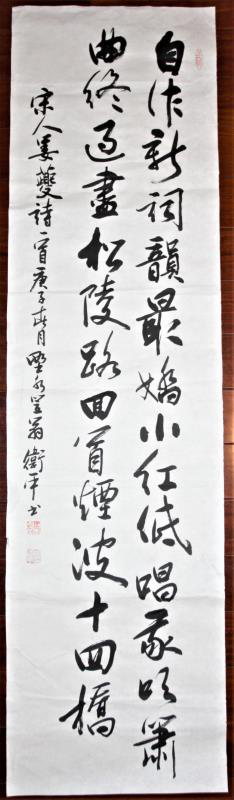 自作新詞韻最嬌小紅低唱我吹簫
曲終過盡松陵路回首煙波十四橋
宋人姜夔詩一首庚子春月聖翁衛平書